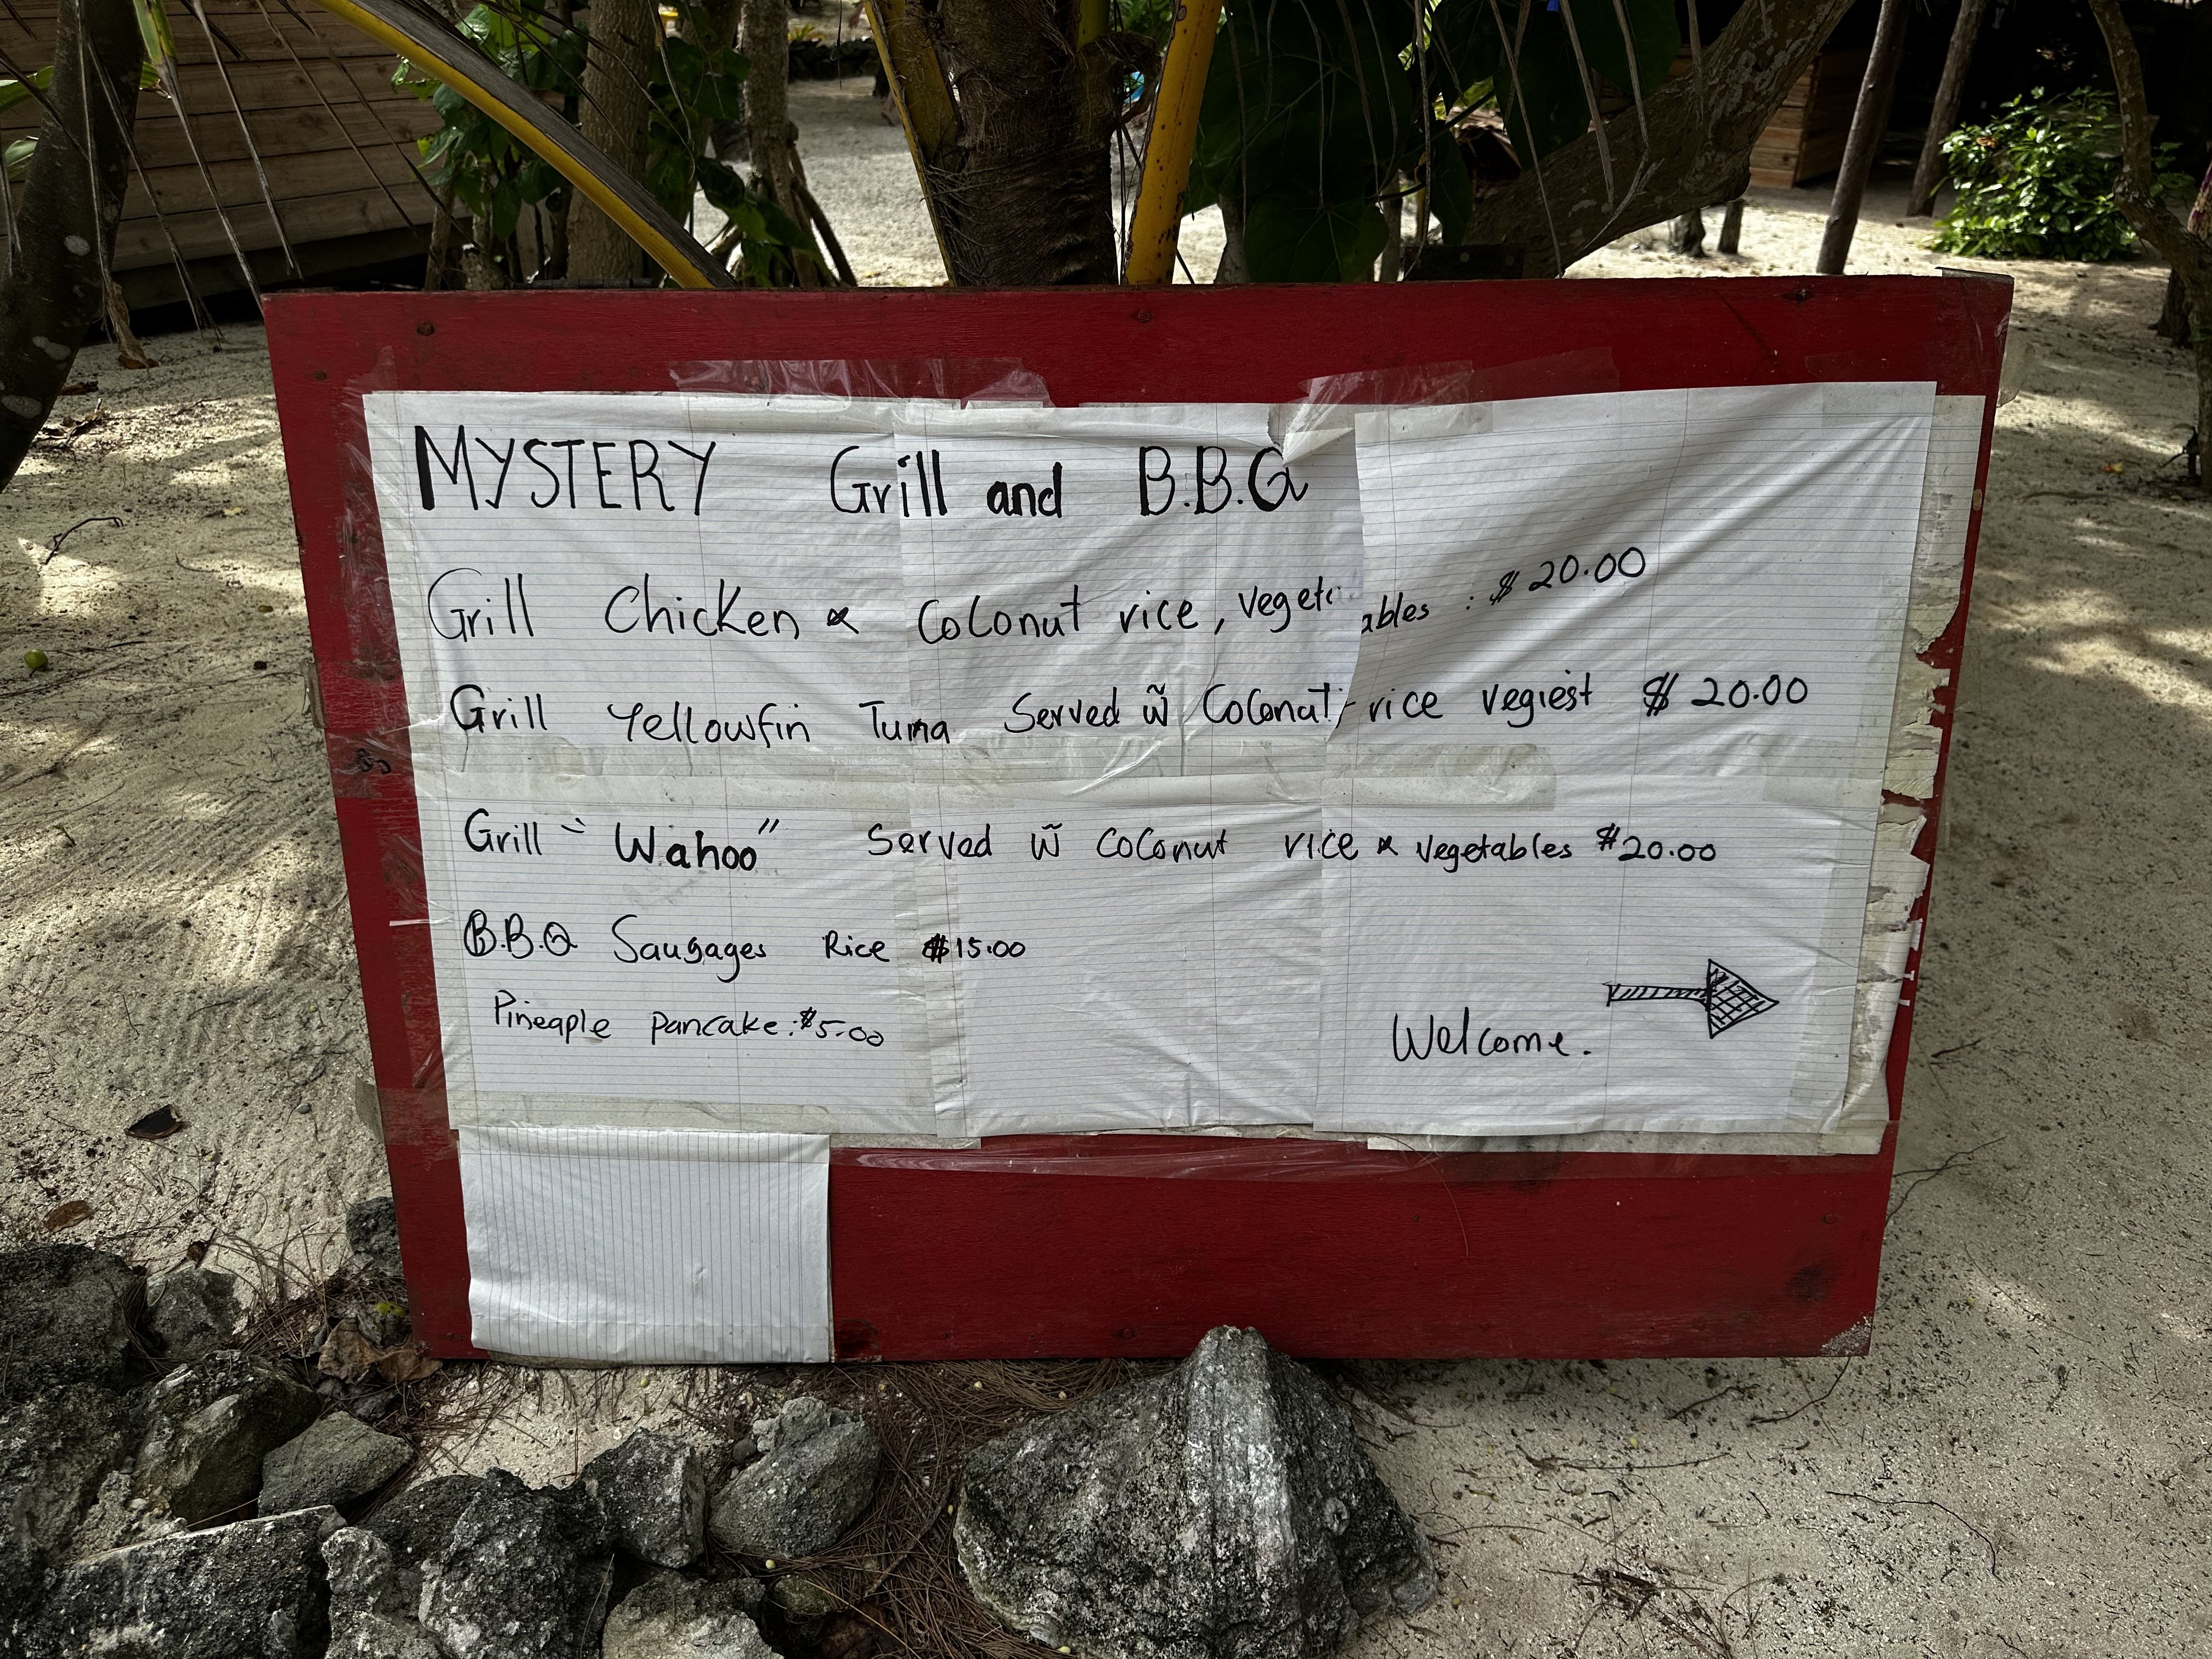 MYSTERY Grill and B.B.Q
Grill Chicken & Coconut rice, vegetables : $20.00
Grill Yellowfin Tuna Served w̃ Coconut rice vegiest $20.00
Grill "Wahoo" Served w̃ Coconut rice & vegetables $20.00
B.B.Q Sausages Rice $15.00
Pineaple pancake:$5.00
Welcome.